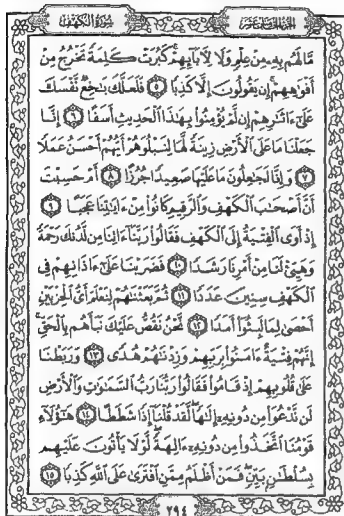 الجزء الخامس عشر
سورة الكهف
مَّا لَهُم بِهِۦ مِنْ عِلْمٍ وَلَا لِآبَآئِهِمْ كَبُرَتْ كَلِمَةً تَخْرُجُ مِنْ
أَفْوَٰهِهِمْ إِن يَقُولُونَ إِلَّا كَذِبًا ٥ فَلَعَلَّكَ بَٰخِعٌ نَّفْسَكَ
عَلَىٰٓ ءَاثَٰرِهِمْ إِن لَّمْ يُؤْمِنُوا۟ بِهَٰذَا ٱلْحَدِيثِ أَسَفًا ٦ إِنَّا
جَعَلْنَا مَا عَلَى ٱلْأَرْضِ زِينَةً لَّهَا لِنَبْلُوَهُمْ أَيُّهُمْ أَحْسَنُ عَمَلًا
٧ وَإِنَّا لَجَٰعِلُونَ مَا عَلَيْهَا صَعِيدًا جُرُزًا ٨ أَمْ حَسِبْتَ
أَنَّ أَصْحَٰبَ ٱلْكَهْفِ وَٱلرَّقِيمِ كَانُوا۟ مِنْ ءَايَٰتِنَا عَجَبًا ٩
إِذْ أَوَى ٱلْفِتْيَةُ إِلَى ٱلْكَهْفِ فَقَالُوا۟ رَبَّنَآ ءَاتِنَا مِن لَّدُنكَ رَحْمَةً
وَهَيِّئْ لَنَا مِنْ أَمْرِنَا رَشَدًا ١٠ فَضَرَبْنَا عَلَىٰٓ ءَاذَانِهِمْ فِى
ٱلْكَهْفِ سِنِينَ عَدَدًا ١١ ثُمَّ بَعَثْنَٰهُمْ لِنَعْلَمَ أَىُّ ٱلْحِزْبَيْنِ
أَحْصَىٰ لِمَا لَبِثُوٓا۟ أَمَدًا ١٢ نَّحْنُ نَقُصُّ عَلَيْكَ نَبَأَهُم بِٱلْحَقِّ
إِنَّهُمْ فِتْيَةٌ ءَامَنُوا۟ بِرَبِّهِمْ وَزِدْنَٰهُمْ هُدًى ١٣ وَرَبَطْنَا
عَلَىٰ قُلُوبِهِمْ إِذْ قَامُوا۟ فَقَالُوا۟ رَبُّنَا رَبُّ ٱلسَّمَٰوَٰتِ وَٱلْأَرْضِ
لَن نَّدْعُوَا۟ مِن دُونِهِۦٓ إِلَٰهًا لَّقَدْ قُلْنَآ إِذًا شَطَطًا ١٤ هَٰٓؤُلَآءِ
قَوْمُنَا ٱتَّخَذُوا۟ مِن دُونِهِۦٓ ءَالِهَةً لَّوْلَا يَأْتُونَ عَلَيْهِم
بِسُلْطَٰنٍ بَيِّنٍ فَمَنْ أَظْلَمُ مِمَّنِ ٱفْتَرَىٰ عَلَى ٱللَّهِ كَذِبًا ١٥
٢٩٤